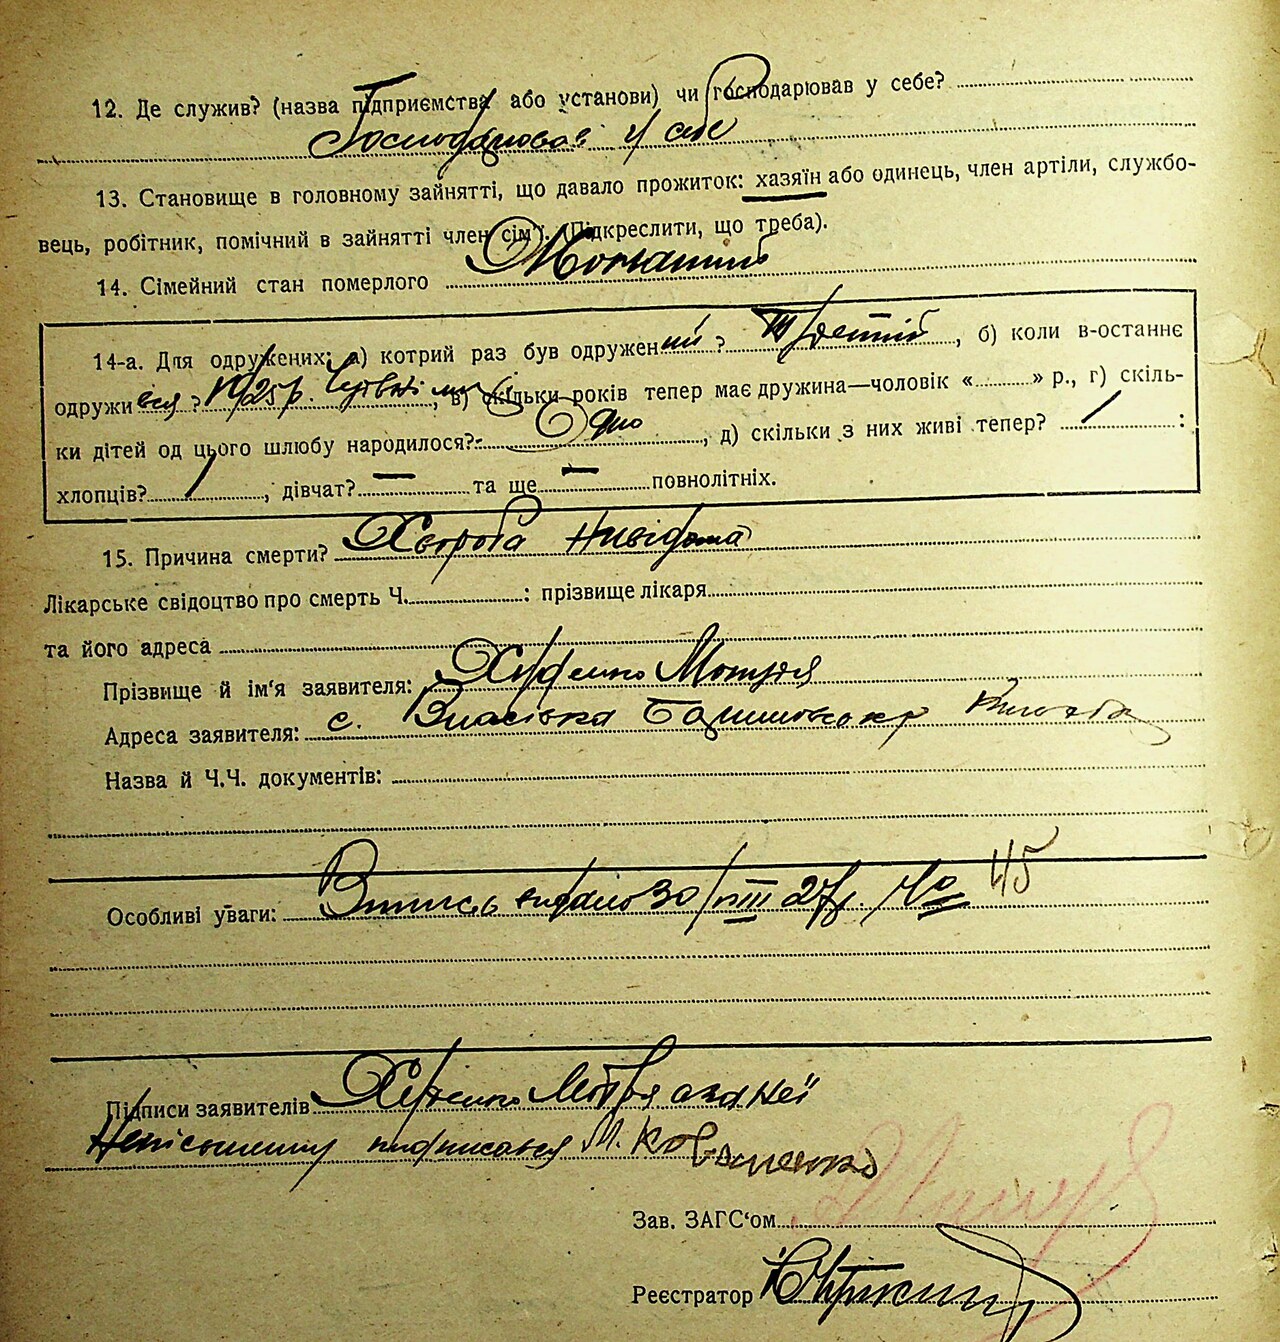 12. Де служив? (назва підприємства або установи) чи господарював у себе?
Господарював у себе
13. Становище в головному зайнятті, що давало прожиток: хазяїн або одинець, член артіли, службо-
вець, робітник, помічний в зайнятті член сім'ї. (Підкреслити, що треба).
14. Сімейний стан померлого
14-а. Для одружених: а) котрий раз був одружений? Третій, б) коли в-останнє
одружився? 1925 р. , в) скільки років тепер має дружина—чоловік « » р., г) скіль-
ки дітей од цього шлюбу народилося? Одно, д) скільки з них живі тепер? 1 :
хлопців? 1, дівчат? — та ще — повнолітніх.
15. Причина смерти? Хвороба Невідома
Лікарське свідоцтво про смерть Ч. : прізвище лікаря
та його адреса
Прізвище й ім'я заявителя: Мотря
Адреса заявителя: с.
Назва й Ч.Ч. документів:
45
Особливі уваги: Випись видано 30/VIII 27р. №
Підписи заявителів Мотря а за неї
Неписьменну подписався М. Коваленко
Зав. ЗАГС'ом
Реєстратор